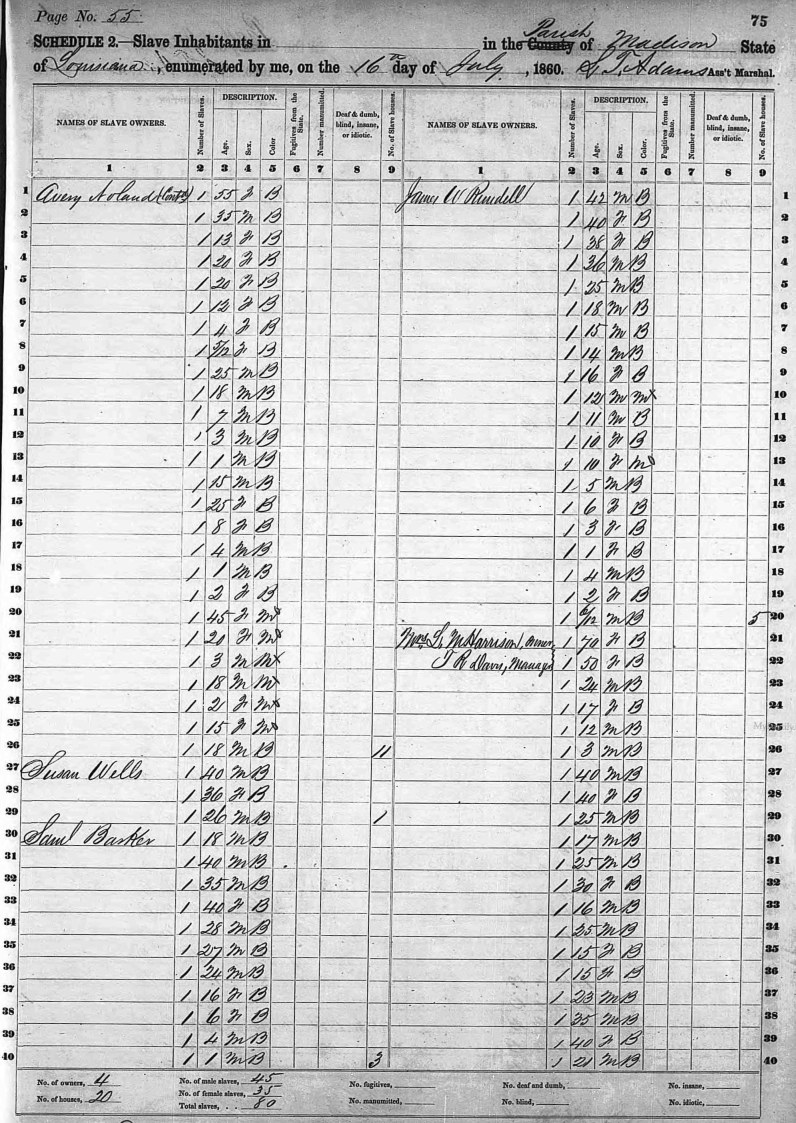 Page No. 55
75
SCHEDULE 2.—Slave Inhabitants in in the County Parish of Madison State
of Louisiana, enumerated by me, on the 16th day of July, 1860. S. T. Adams Ass't Marshal.
NAMES OF SLAVE OWNERS. Number of Slaves. DESCRIPTION. Age. Sex. Color. Fugitives from the State. Number manumitted. Deaf & dumb, blind, insane, or idiotic. No. of Slave houses. NAMES OF SLAVE OWNERS. Number of Slaves. DESCRIPTION. Age. Sex. Color. Fugitives from the State. Number manumitted. Deaf & dumb, blind, insane, or idiotic. No. of Slave houses.
1 2 3 4 5 6 7 8 9 1 2 3 4 5 6 7 8 9
1 Avery Noland (Cont'd) 1 55 F B James W Rundell 1 42 M B 1
2 1 35 M B 1 40 F B 2
3 1 13 F B 1 38 F B 3
4 1 20 F B 1 36 M B 4
5 1 20 F B 1 25 M B 5
6 1 12 F B 1 18 M B 6
7 1 4 F B 1 15 M B 7
8 1 5/12 F B 1 14 M B 8
9 1 25 M B 1 16 F B 9
10 1 18 M B 1 12 M M 10
11 1 7 M B 1 11 M B 11
12 1 3 M B 1 10 F B 12
13 1 1 M B 1 10 F M 13
14 1 15 M B 1 5 M B 14
15 1 25 F B 1 6 F B 15
16 1 8 F B 1 3 F B 16
17 1 4 M B 1 1 F B 17
18 1 1 M B 1 4 M B 18
19 1 2 F B 1 2 F B 19
20 1 45 F M 1 6/12 M B 5 20
21 1 20 F M L. McHarrison, Owner, 1 70 F B 21
22 1 3 M M T R Davis, Manager 1 50 F B 22
23 1 18 M M 1 24 M B 23
24 1 21 F M 1 17 F B 24
25 1 15 F M 1 12 M B 25
26 1 18 M B 11 1 3 M B 26
27 Susan Wells 1 40 M B 1 40 M B 27
28 1 36 F B 1 40 F B 28
29 1 26 M B 1 1 25 M B 29
30 Saml Barker 1 18 M B 1 17 M B 30
31 1 40 M B 1 25 M B 31
32 1 35 M B 1 30 F B 32
33 1 40 F B 1 16 M B 33
34 1 28 M B 1 25 M B 34
35 1 27 M B 1 15 F B 35
36 1 24 M B 1 15 F B 36
37 1 16 F B 1 23 M B 37
38 1 6 F B 1 35 M B 38
39 1 4 M B 1 40 F B 39
40 1 1 M B 3 1 21 M B 40
No. of owners, 4 No. of male slaves, 45 No. fugitives, No. of deaf and dumb, No. insane,
No. of houses, 20 No. of female slaves, 35 No. manumitted, No. blind, No. idiotic,
Total slaves, 80